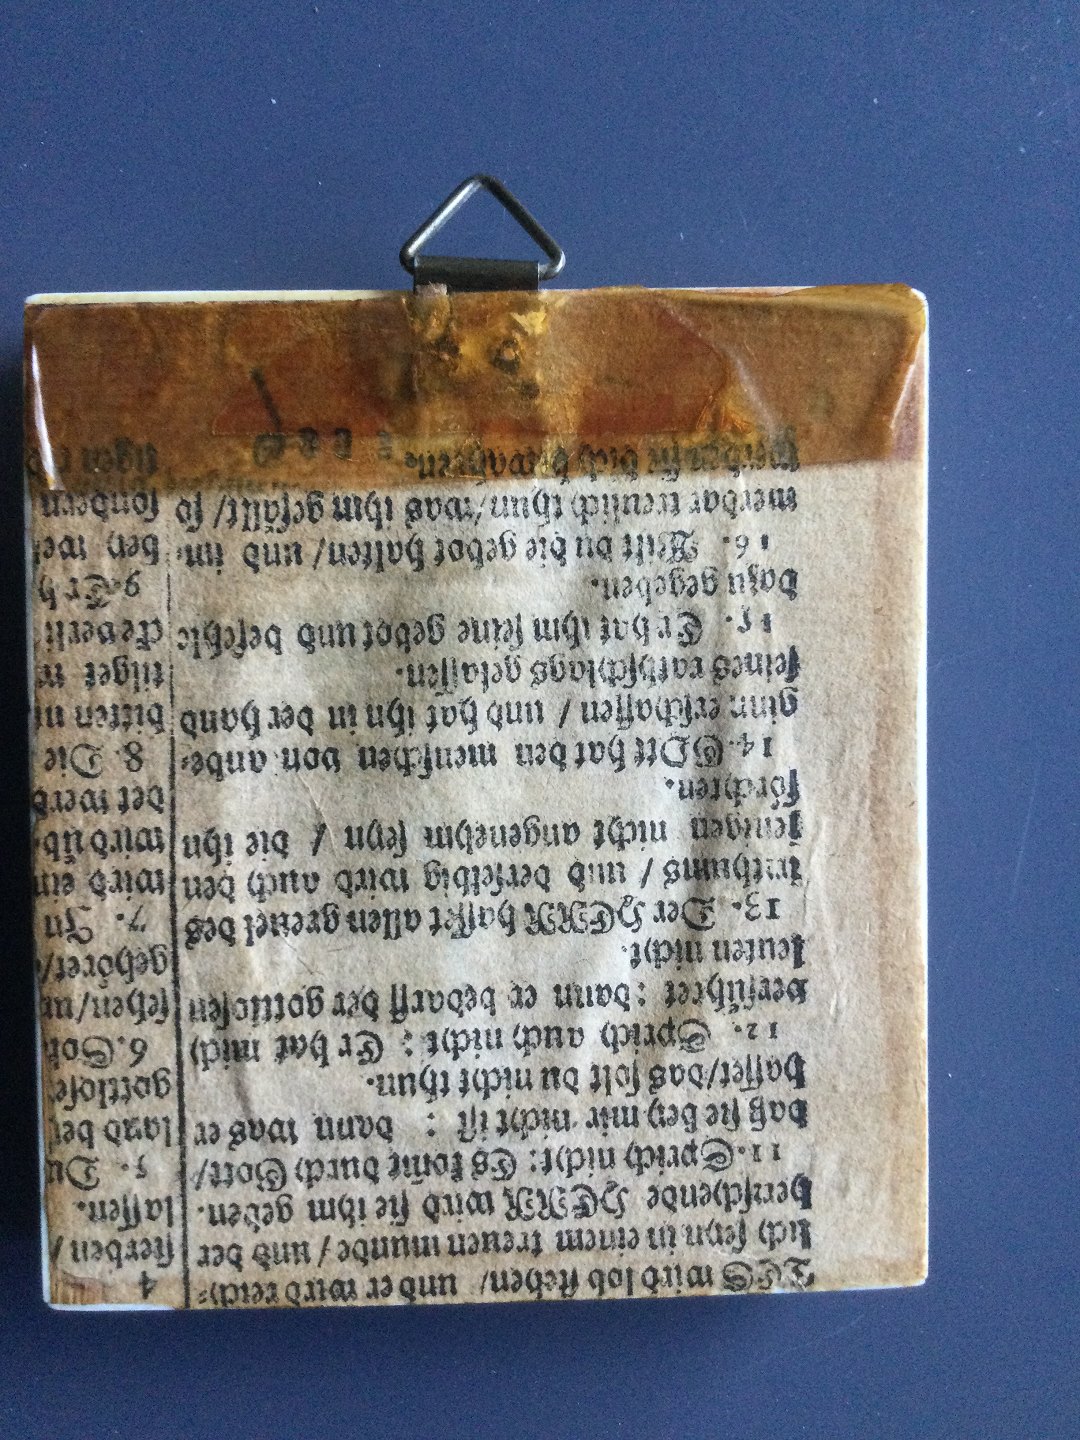 ES wird lob stehen/ und er wird reich=
lich seyn in einem treuen munde/ und der
herrschende HERR wird sie ihm geben.
11. Sprich nicht: Es komt durch Gott/
daß sie bey mir nicht ist : dann was er
hasset/das solt du nicht thun.
12. Sprich auch nicht: Er hat mich
verführet: dann er bedarff der gottlosen
leuten nicht.
13. Der HERR hasset allen greuel des
irrthums / und derselbig wird auch den
jenigen nicht angenehm seyn / die ihn
förchten.
14. GOtt hat den menschen von anbe=
ginn erschaffen / und hat ihn in der hand
seines rathschlags gelassen.
15. Er hat ihm seine gebot und befehle
dazu gegeben.
16. Wilt du die gebot halten / und im=
merdar treulich thun/ was ihm gefällt/ so
werden sie dich bewahren.
4
sterben /
lassen.
5. Du
land be
gottlose
6. Son
sehen/un
gehöret/
7. In
wird ein
wird üb
det werd
8. Die
bitten u
tilget w
cke verli
9. Er h
hen wel
sondern
tigen